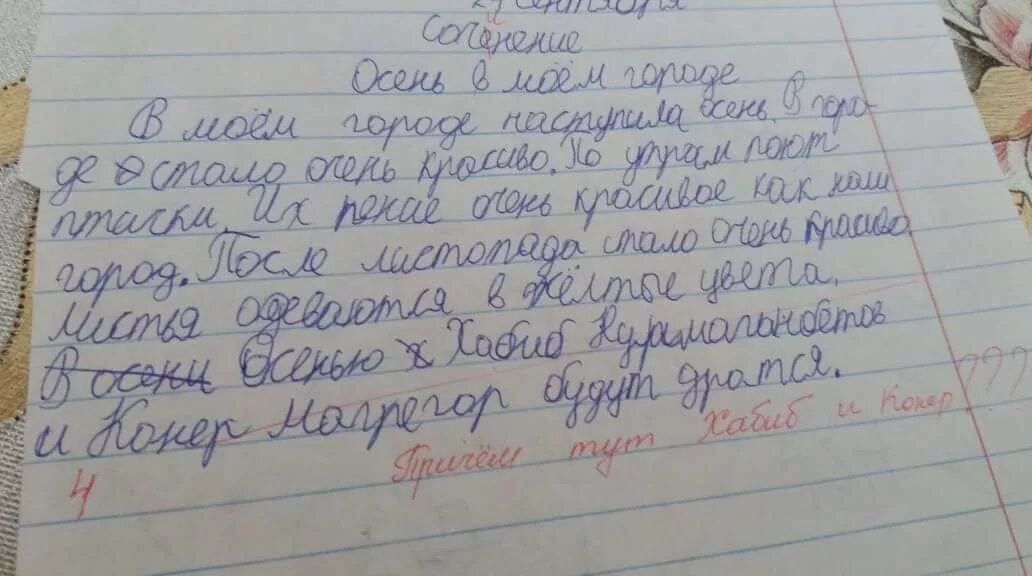 сентября
Соченение
и
Осень в моём городе
В моём городе наступила осень. В горо-
де стало очень красиво. По утрам поют
птички. Их пение очень красивое как наш
город. После листопада стало очень красиво.
Листья одеваются в жёлтые цвета.
В осени Осенью Хабиб Нурмагомедов
и Конер Магрегор будут дратся.
4 Причём тут Хабиб и Конер ???